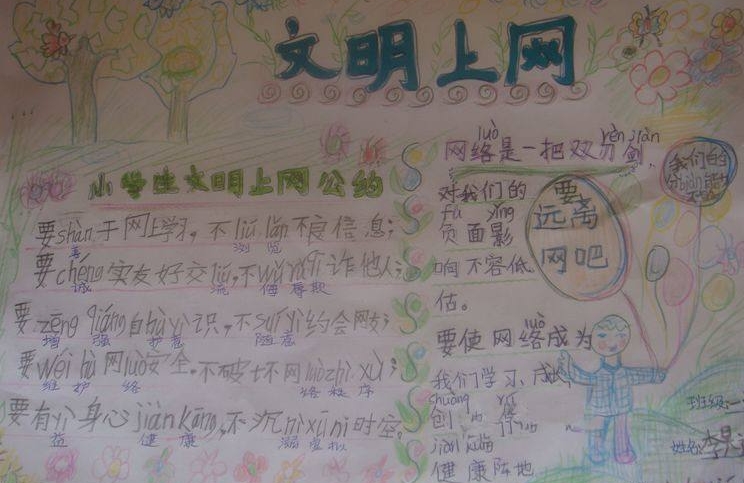 文明上网
小学生文明上网公约
要shàn于网上学习，不liú lǎn不良信息；
善 浏览
要chéng实友好交liú，不wǔ rǔ qī诈他人；
诚 流 侮辱欺
要zēng qiáng自hù yì识，不suí yì约会网友；
增强 护意 随意
要wéi hù网luò安全，不破坏网luò zhì xù；
维护 络 络秩序
要有yì身心jiàn kāng，不沉nì xū nǐ时空。
益 健康 溺虚拟
luò rèn jiàn
网络是一把双刃剑，
对我们的
fù yǐng
负面影
响不容低
估。
luò
要使网络成为
我们学习、成长、
健康阵地
要
远离
网吧
我们的
班级：一
姓名：李